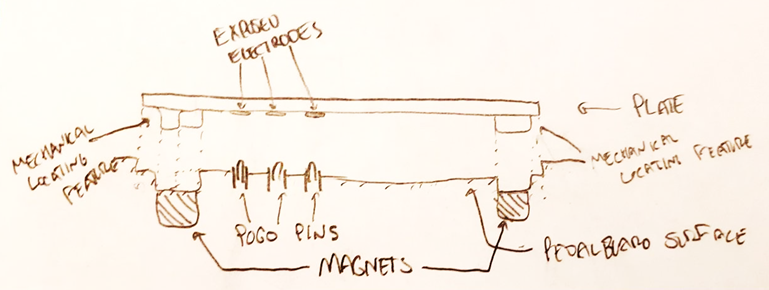 EXPOSED
ELECTRODES
PLATE
MECHANICAL
LOCATING
FEATURE
MECHANICAL
LOCATING FEATURE
POGO PINS
PEDALBOARD SURFACE
MAGNETS